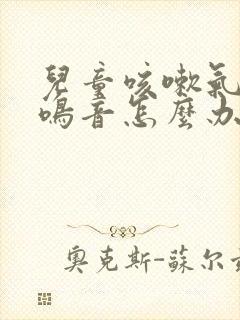 兒童咳嗽氣
鳴音怎麼办
奧克斯-蘇尔